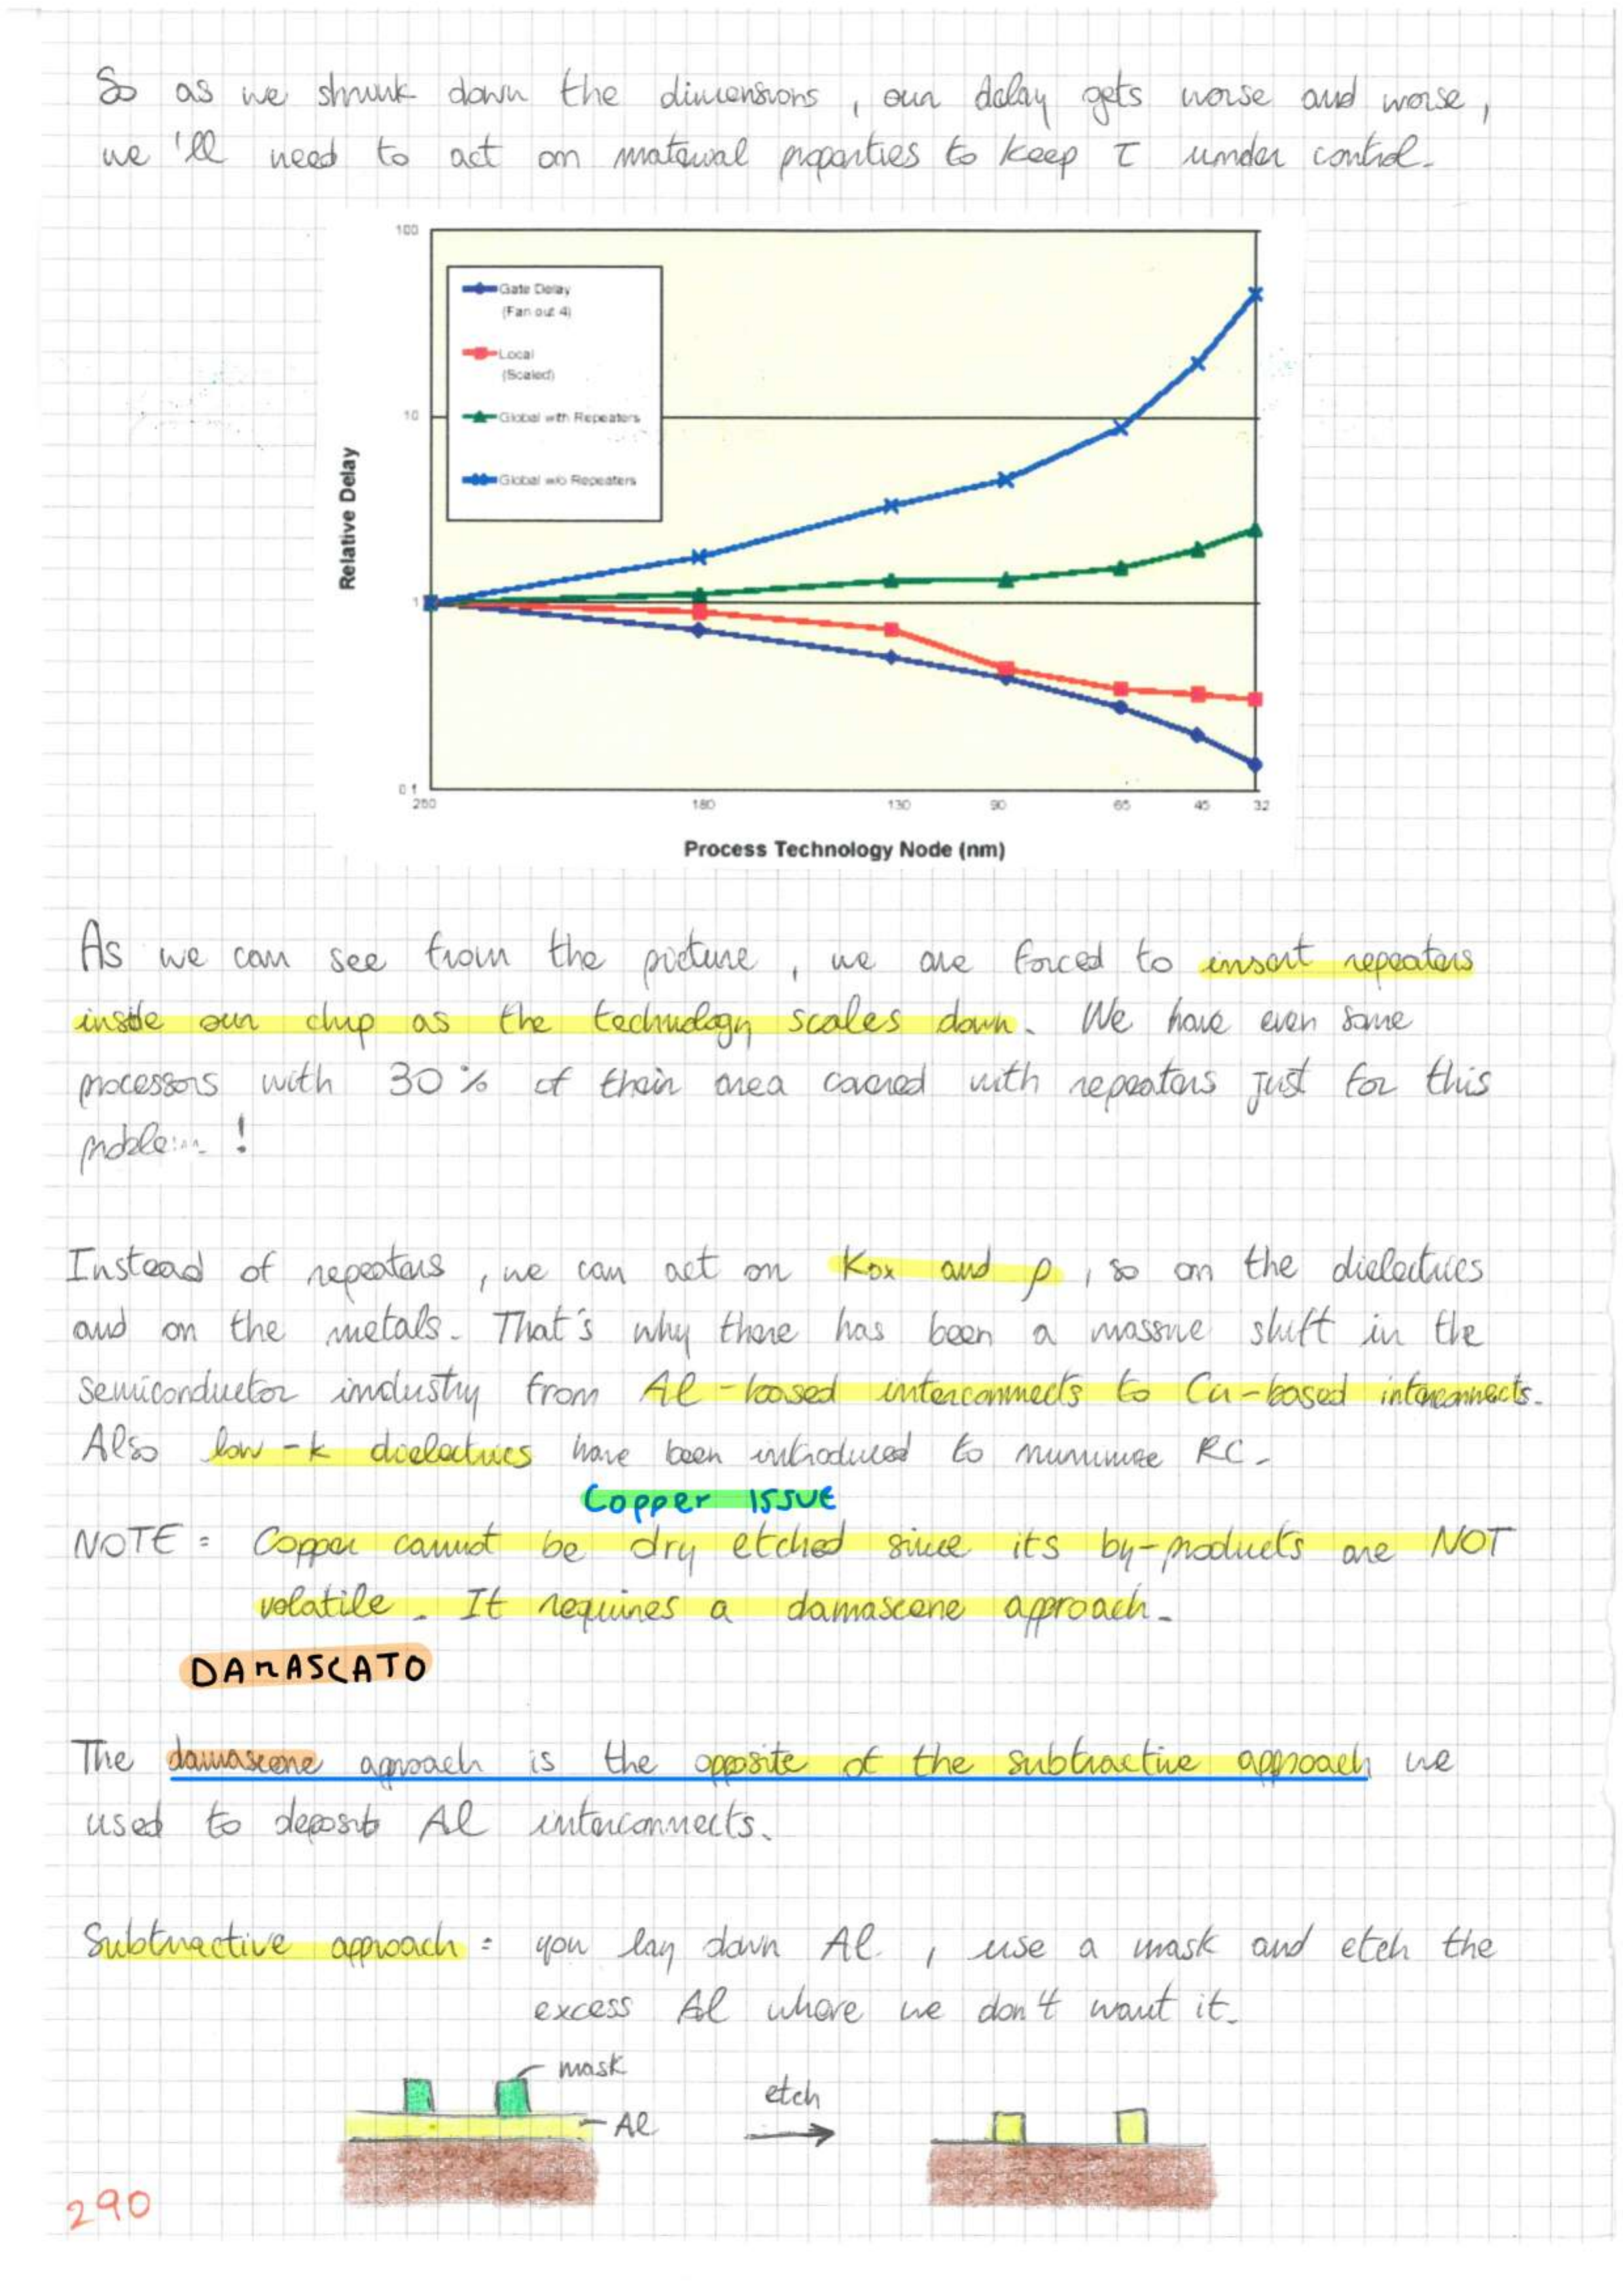 So as we shrunk down the dimensions, our delay gets worse and worse,
we'll need to act on material properties to keep τ under control.
100
Gate Delay
(Fan out 4)
Local
(Scaled)
10
Global with Repeaters
Global w/o Repeaters
Relative Delay
1
0.1
250 180 130 90 65 45 32
Process Technology Node (nm)
As we can see from the picture, we are forced to insert repeaters
inside our chip as the technology scales down. We have even some
processors with 30% of their area covered with repeaters just for this
problem !
Instead of repeaters, we can act on Kox and ρ, so on the dielectrics
and on the metals. That's why there has been a massive shift in the
semiconductor industry from Al-based interconnects to Cu-based interconnects.
Also low-k dielectrics have been introduced to minimize RC.
Copper ISSUE
NOTE: Copper cannot be dry etched since its by-products are NOT
volatile. It requires a damascene approach.
DAMASCATO
The damascene approach is the opposite of the subtractive approach we
used to deposit Al interconnects.
Subtractive approach: you lay down Al, use a mask and etch the
excess Al where we don't want it.
mask
etch
Al
290